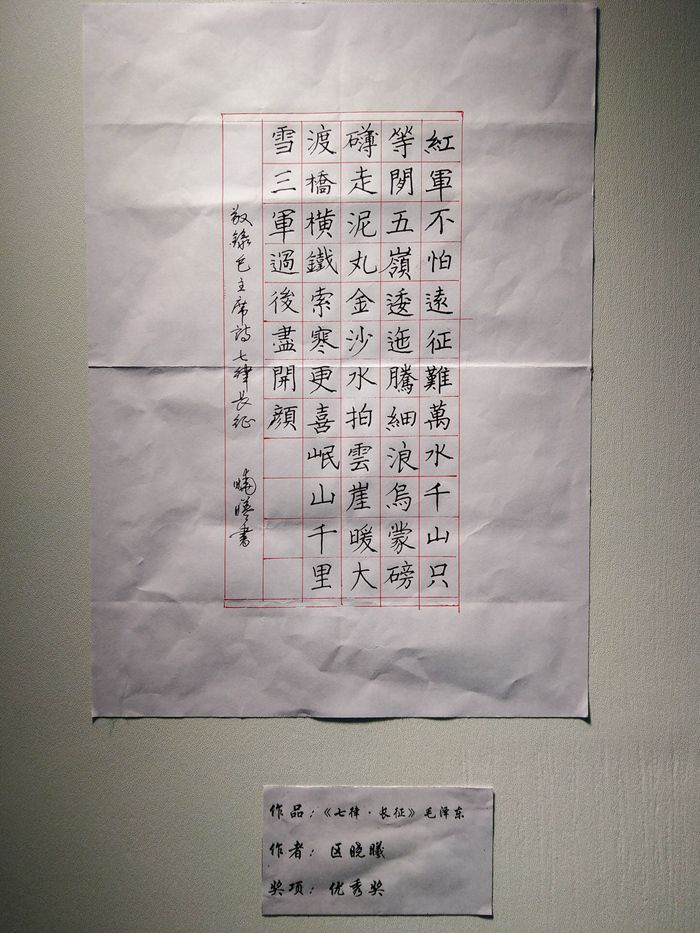 紅軍不怕遠征難萬水千山只
等閒五嶺逶迤騰細浪烏蒙磅
礴走泥丸金沙水拍雲崖暖大
渡橋橫鐵索寒更喜岷山千里
雪三軍過後盡開顏
敬錄毛主席詩七律長征 曉曦書
作品：《七律·长征》毛泽东
作者：区晓曦
奖项：优秀奖